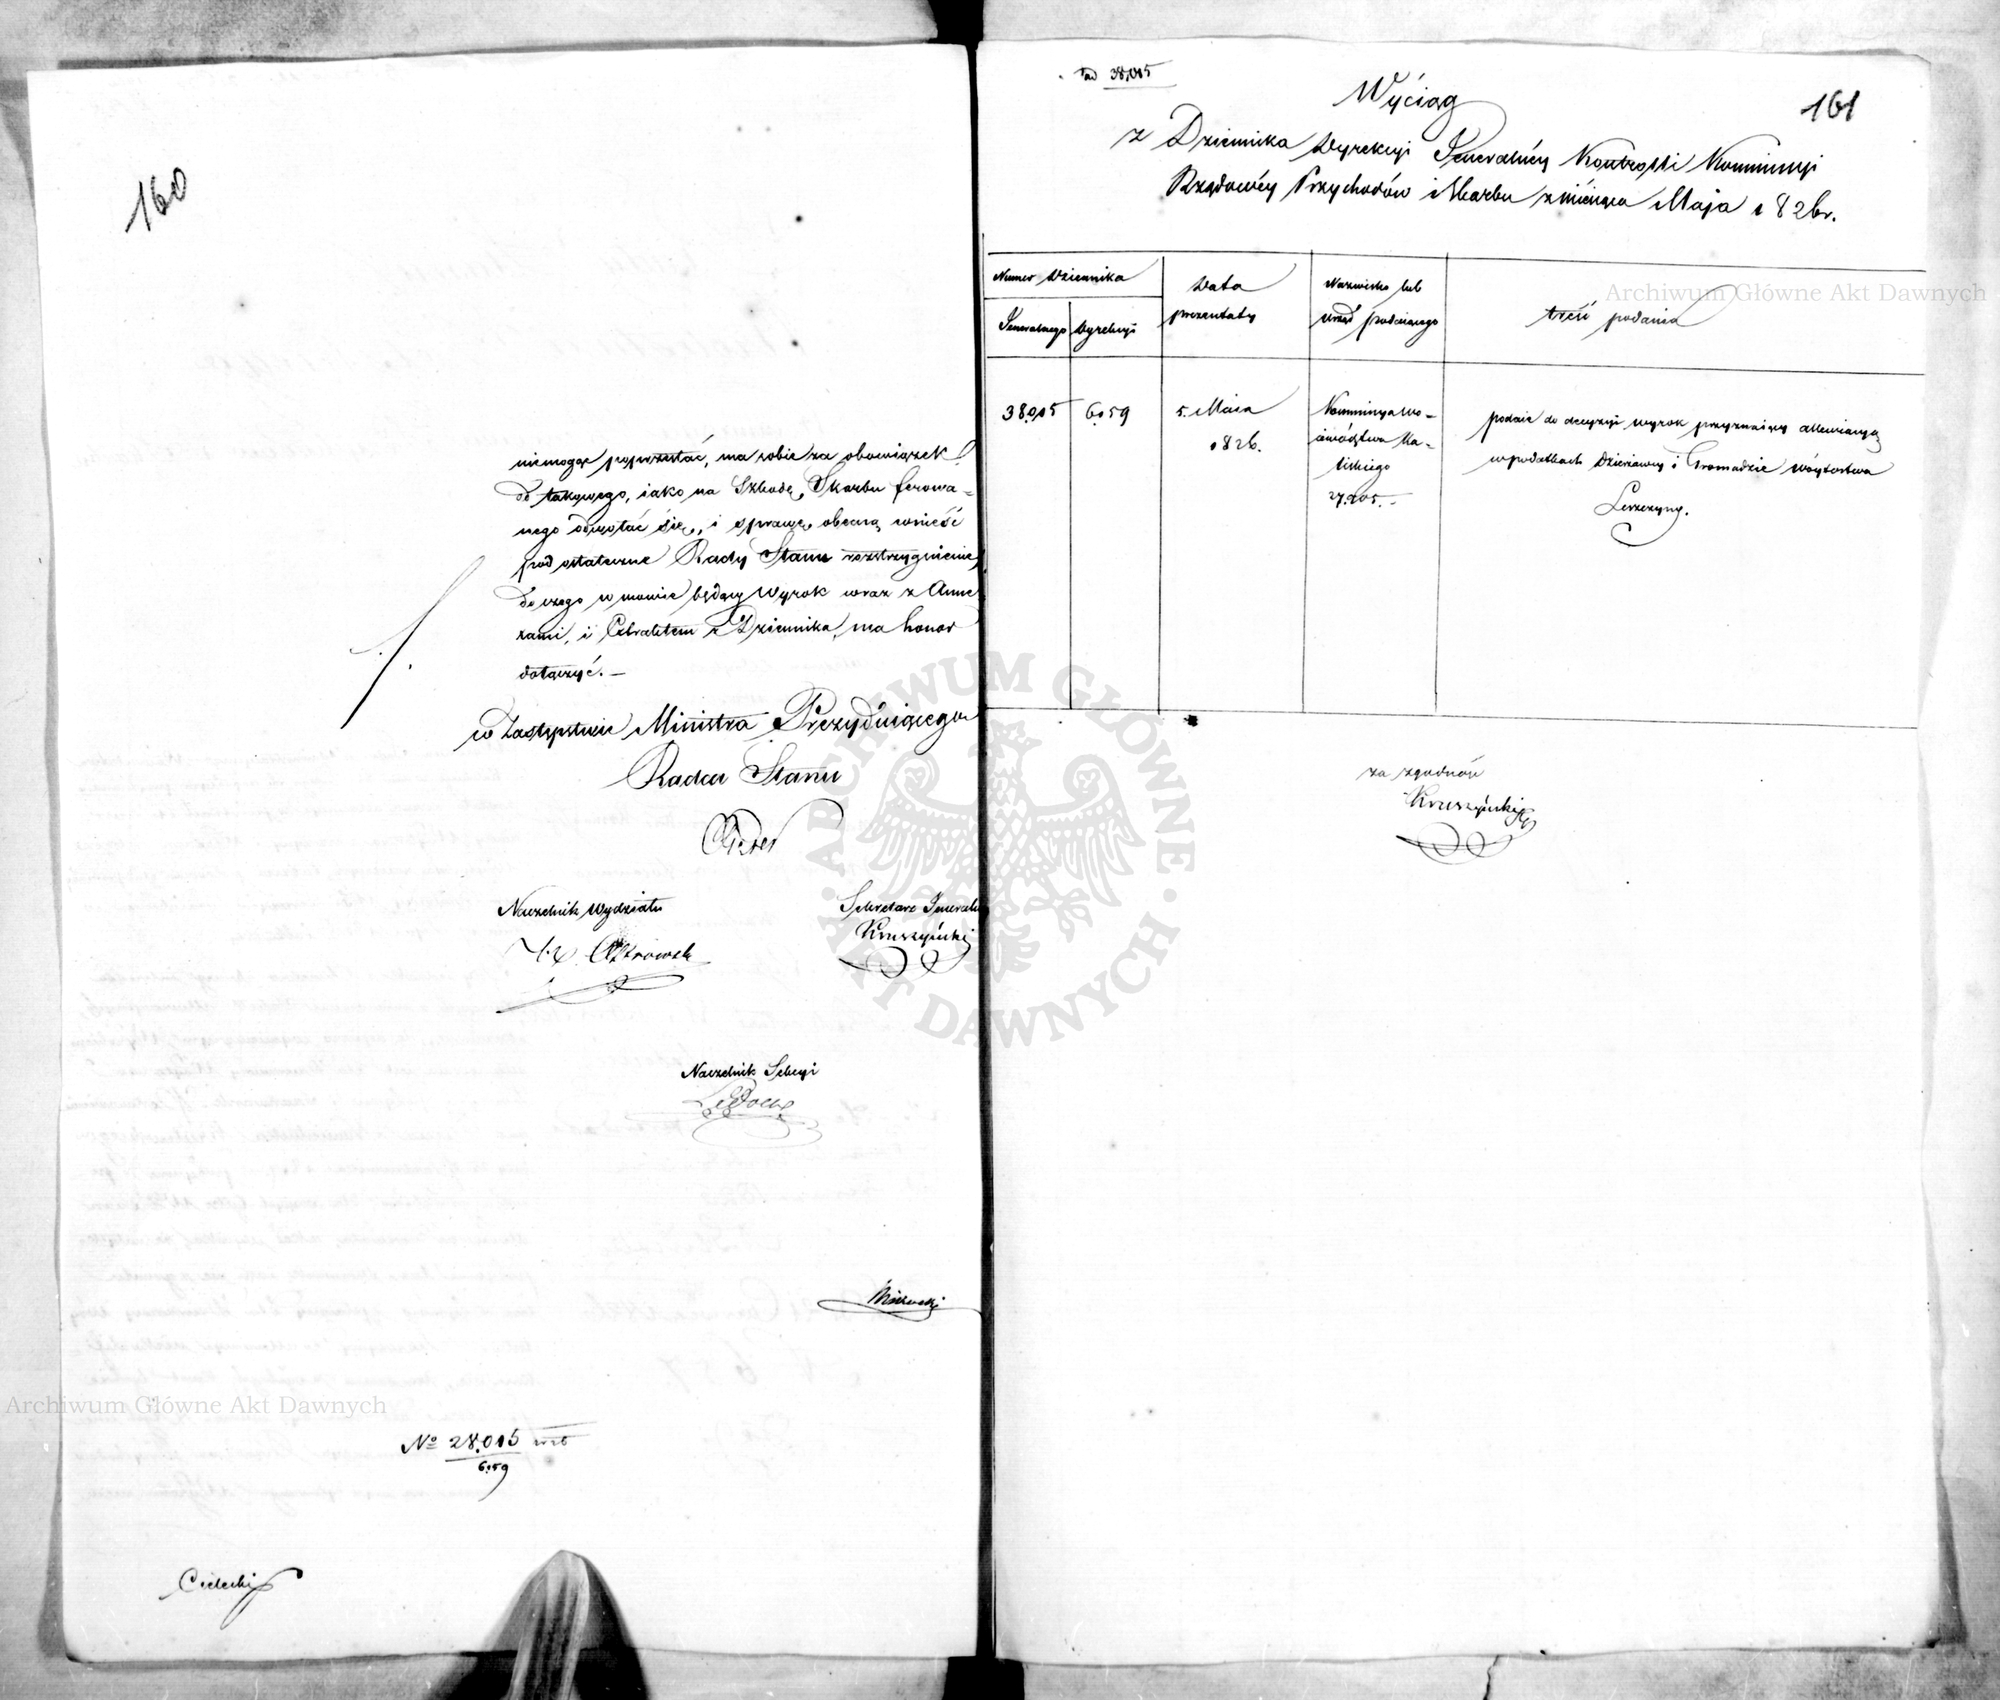 160
niemogąc poprzestać, ma sobie za obowiązek
od takowego, iako na Szkodę Skarbu ferowa-
nego odwołać się, i sprawę obecną wnieść
pod ostateczne Rady Stanu rozstrzygnienie,
do czego w mowie będący Wyrok wraz z Anne-
xami, i Extraktem z Dziennika, ma honor
dołączyć. —
w Zastępstwie Ministra Prezyduiącego
Radca Stanu
Naczelnik Wydziału
Sekretarz Jeneralny
Kruszyński
Naczelnik Sekcyi
No 28.015
6159
Cielecki
ad 38,015
161
Wyciąg
z Dziennika Dyrekcyi Jeneralnéy Kontrolli Kommissyi
Rządowéy Przychodów i Skarbu z miesiąca Maja 1826r.
Numer Dziennika
Jeneralnego
Dyrekcyi
Data
prezentaty
Nazwisko lub
Urząd podaiącego
treść podania
38.015
6159
5. Maia
1826.
Kommissya Wo-
iewództwa Ka-
liskiego
27.205. —
podaie do decyzyi wyrok przyznaiący allewiacyą
w podatkach Dzierżawcy i Gromadzie Wóytostwa
za zgodność
Kruszyński
Archiwum Główne Akt Dawnych
Archiwum Główne Akt Dawnych
ARCHIWUM GŁÓWNE AKT DAWNYCH